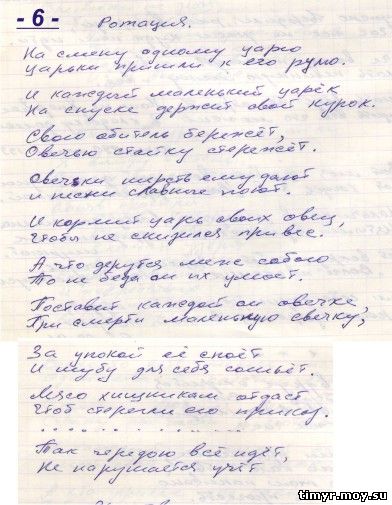 - 6 -
Ротация.
На смену одному царю
Царьки пришли к его рулю.
И каждый маленький царёк
На спуске держит свой курок.
Свою обитель бережёт,
Овечью стайку стережёт.
Овечки шерсть ему дают
и песни славные поют.
И кормит царь своих овец,
Чтобы не снизился привес.
А что дерутся меж собою
То не беда он их умоет.
Поставит каждой он овечке,
При смерти маленькую свечку,
За упокой её споёт
И шубу для себя сошьёт.
Мясо хищникам отдаст
Чтоб стерегли его приказ.
. . . . . . . . . . . . . . .
Так чередою всё идёт,
Не нарушается учёт
timyr.moy.su